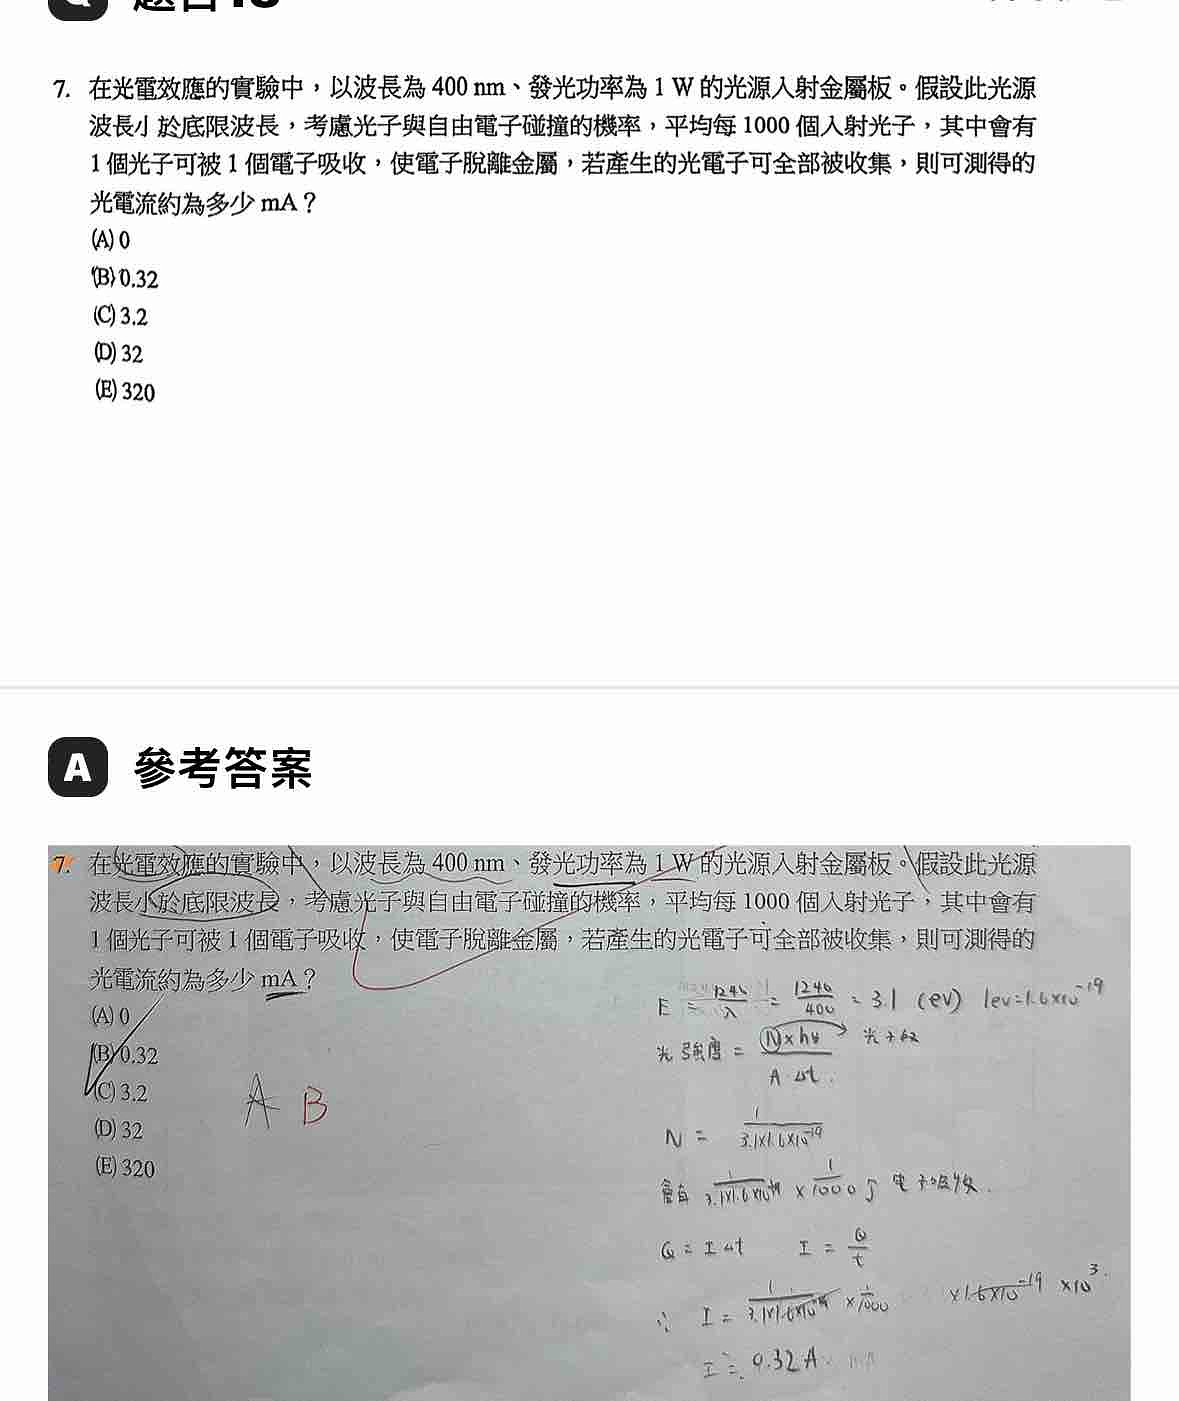 7. 在光電效應的實驗中，以波長為 400 nm、發光功率為 1 W 的光源入射金屬板。假設此光源
波長小於底限波長，考慮光子與自由電子碰撞的機率，平均每 1000 個入射光子，其中會有
1 個光子可被 1 個電子吸收，使電子脫離金屬，若產生的光電子可全部被收集，則可測得的
光電流約為多少 mA？
(A) 0
(B) 0.32
(C) 3.2
(D) 32
(E) 320
A 參考答案
7. 在光電效應的實驗中，以波長為 400 nm、發光功率為 1 W 的光源入射金屬板。假設此光源
波長小於底限波長，考慮光子與自由電子碰撞的機率，平均每 1000 個入射光子，其中會有
1 個光子可被 1 個電子吸收，使電子脫離金屬，若產生的光電子可全部被收集，則可測得的
光電流約為多少 mA？
(A) 0
(B) 0.32
(C) 3.2
(D) 32
(E) 320
A B
E = 1240/λ = 1240/400 = 3.1 (eV) 1eV=1.6×10^-19
光強度 = N×hν / A·Δt 光子數
N = 1 / 3.1×1.6×10^-19
會有 1 / 3.1×1.6×10^-19 × 1/1000 個電子吸收.
Q = IΔt I = Q/t
∴ I = 1 / 3.1×1.6×10^-19 × 1/1000 ×1.6×10^-19 ×10^3.
I = 0.32A